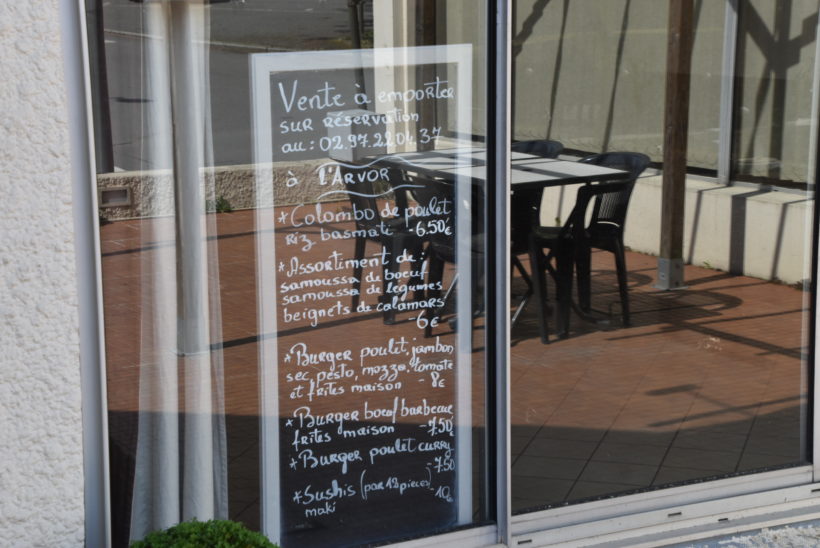 Vente à emporter
sur réservation
au : 02.97.22.04 37
à L'ARVOR
*Colombo de poulet
riz basmati -6.50€
*Assortiment de :
samoussa de boeuf
samoussa de légumes
beignets de calamars
-6€
*Burger poulet, jambon
sec, pesto, mozza, tomate
et frites maison - 8€
*Burger boeuf barbecue
frites maison -7.50€
*Burger poulet curry
-7.50
*Sushis (par 12 pièces) -10€
maki